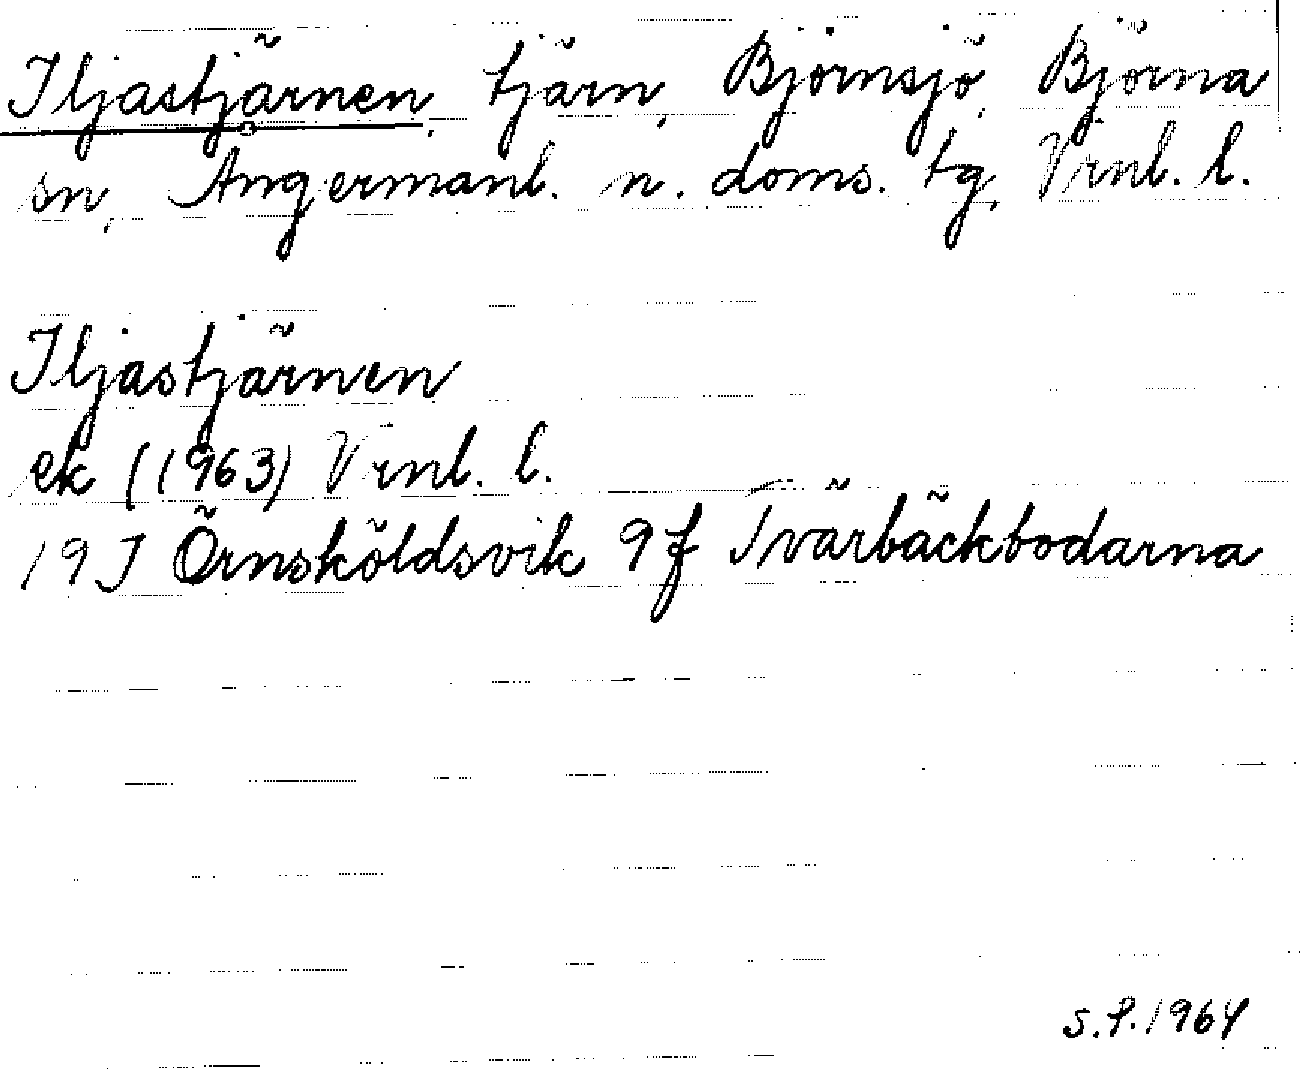 Iljastjärnen, tjärn, Björnsjö, Björna
sn, Ångermanl. n. doms. tg, Vrnl. l.
Iljastjärnen
ek (1963) Vrnl. l.
19 J Örnsköldsvik 9f Tvärbäckbodarna
S.P. 1964